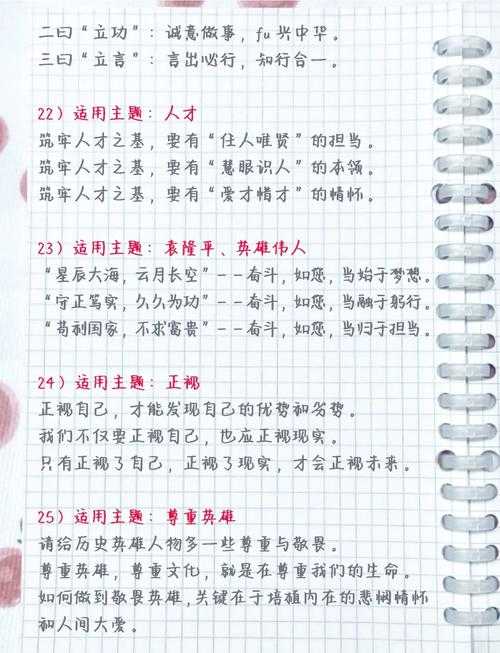 二曰“立功”：诚意做事，fu兴中华。
三曰“立言”：言出必行，知行合一。
22）适用主题：人才
筑牢人才之基，要有“任人唯贤”的担当。
筑牢人才之基，要有“慧眼识人”的本领。
筑牢人才之基，要有“爱才惜才”的情怀。
23）适用主题：袁隆平、英雄伟人
“星辰大海，云月长空”--奋斗，如您，当始于梦想。
“守正笃实，久久为功”--奋斗，如您，当融于躬行。
“苟利国家，不求富贵”--奋斗，如您，当归于担当。
24）适用主题：正视
正视自己，才能发现自己的优势和劣势。
我们不仅要正视自己，也应正视现实。
只有正视了自己，正视了现实，才会正视未来。
25）适用主题：尊重英雄
请给历史英雄人物多一些尊重与敬畏。
尊重英雄，尊重文化，就是在尊重我们的生命。
如何做到敬畏英雄，关键在于培植内在的悲悯情怀
和人间大爱。